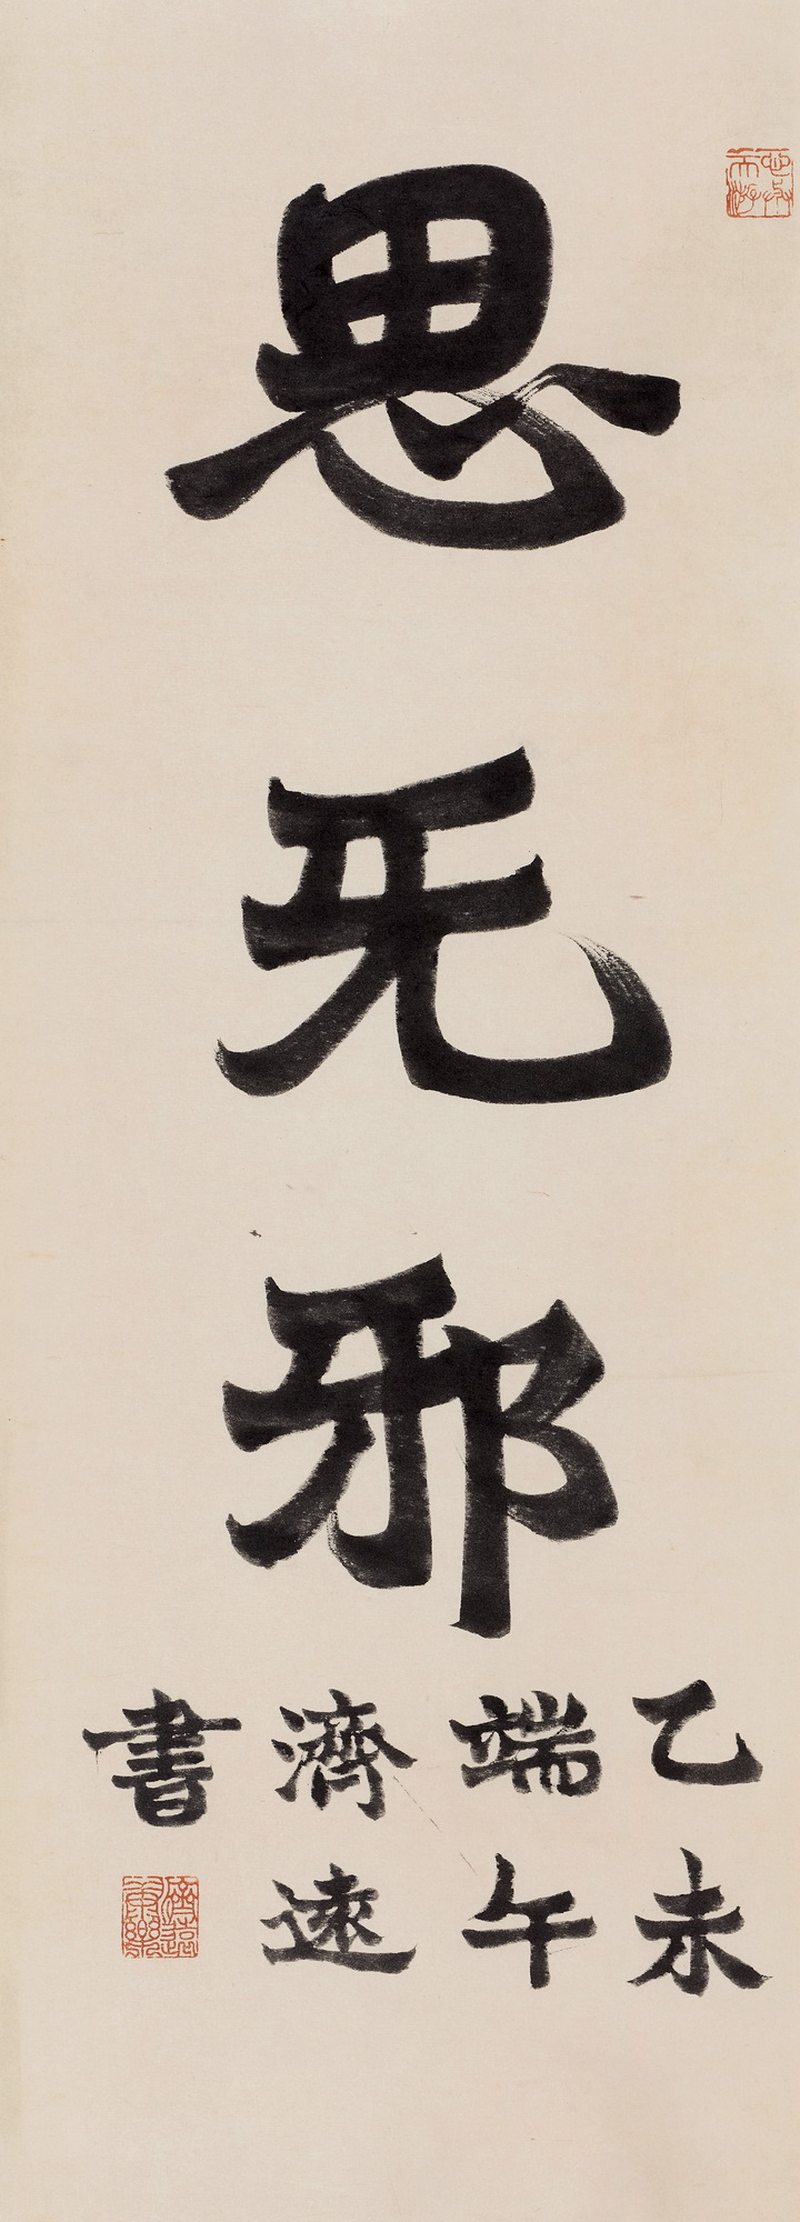 思无邪
乙未
端午
濟遠
書